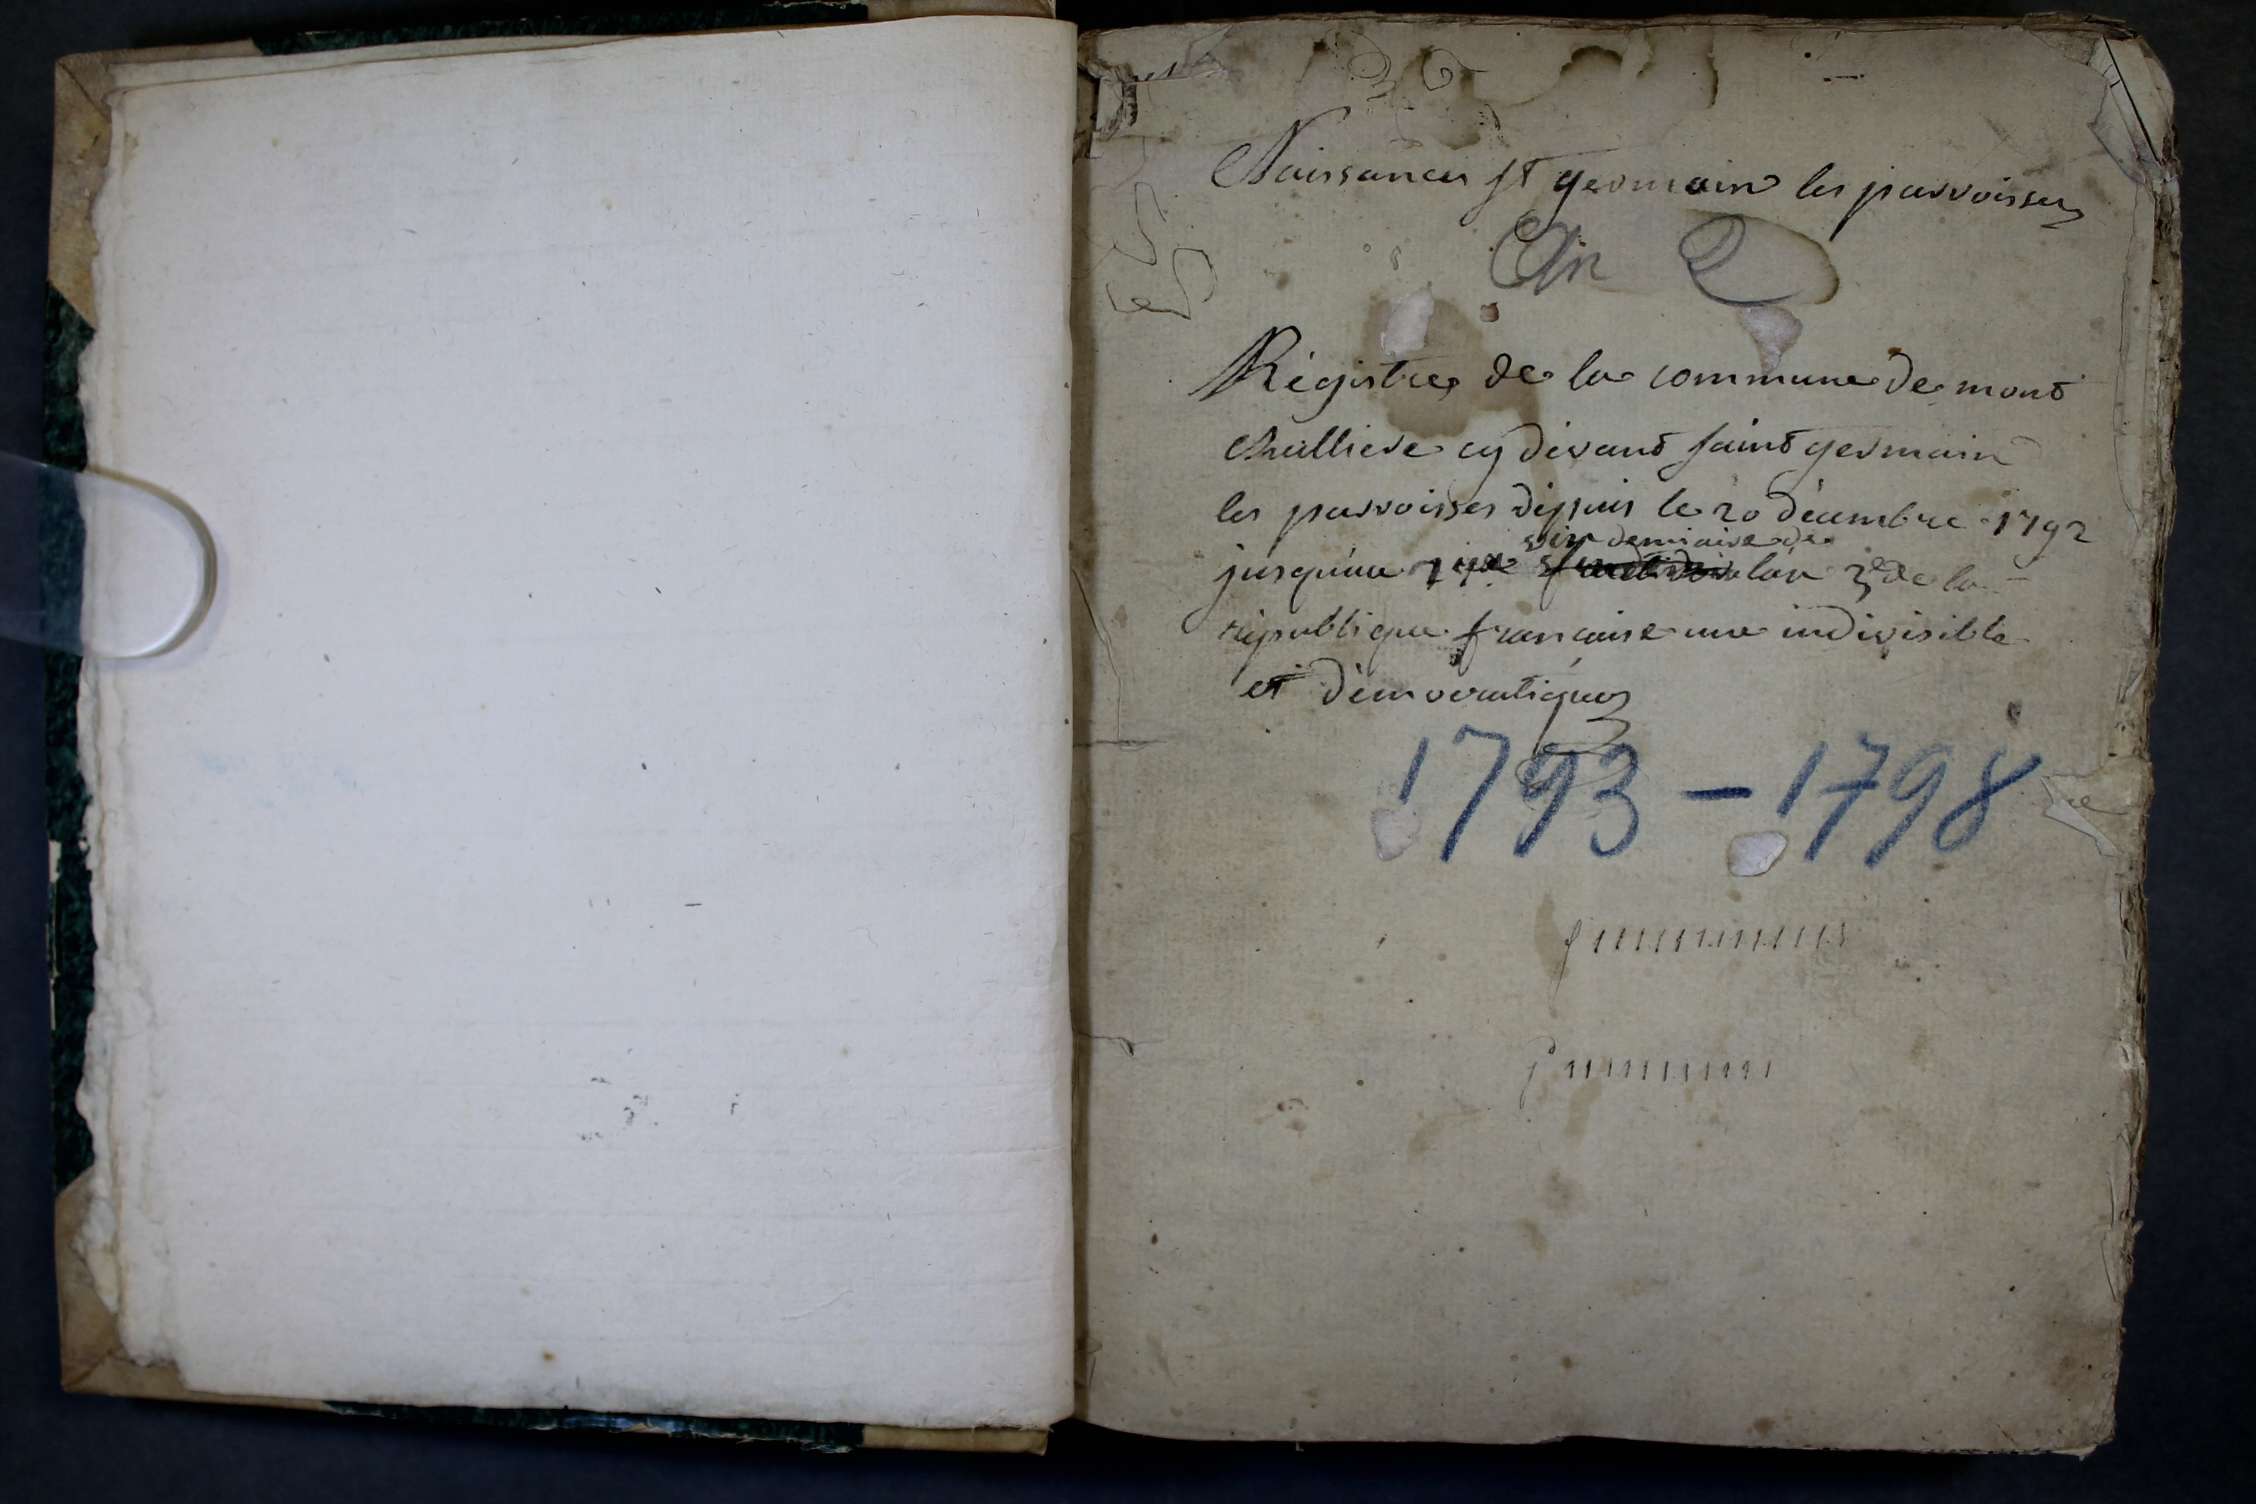 Naissances st germain les parroisses
An 2
Régistre de la commune de mont
challiere cy dévant saint germain
les parroisses dépuis le 20 décembre 1792
vindemiaire de
jusqu'au 1er lan 3e de la
république francaise une indivisible
et démocratique
1793-1798